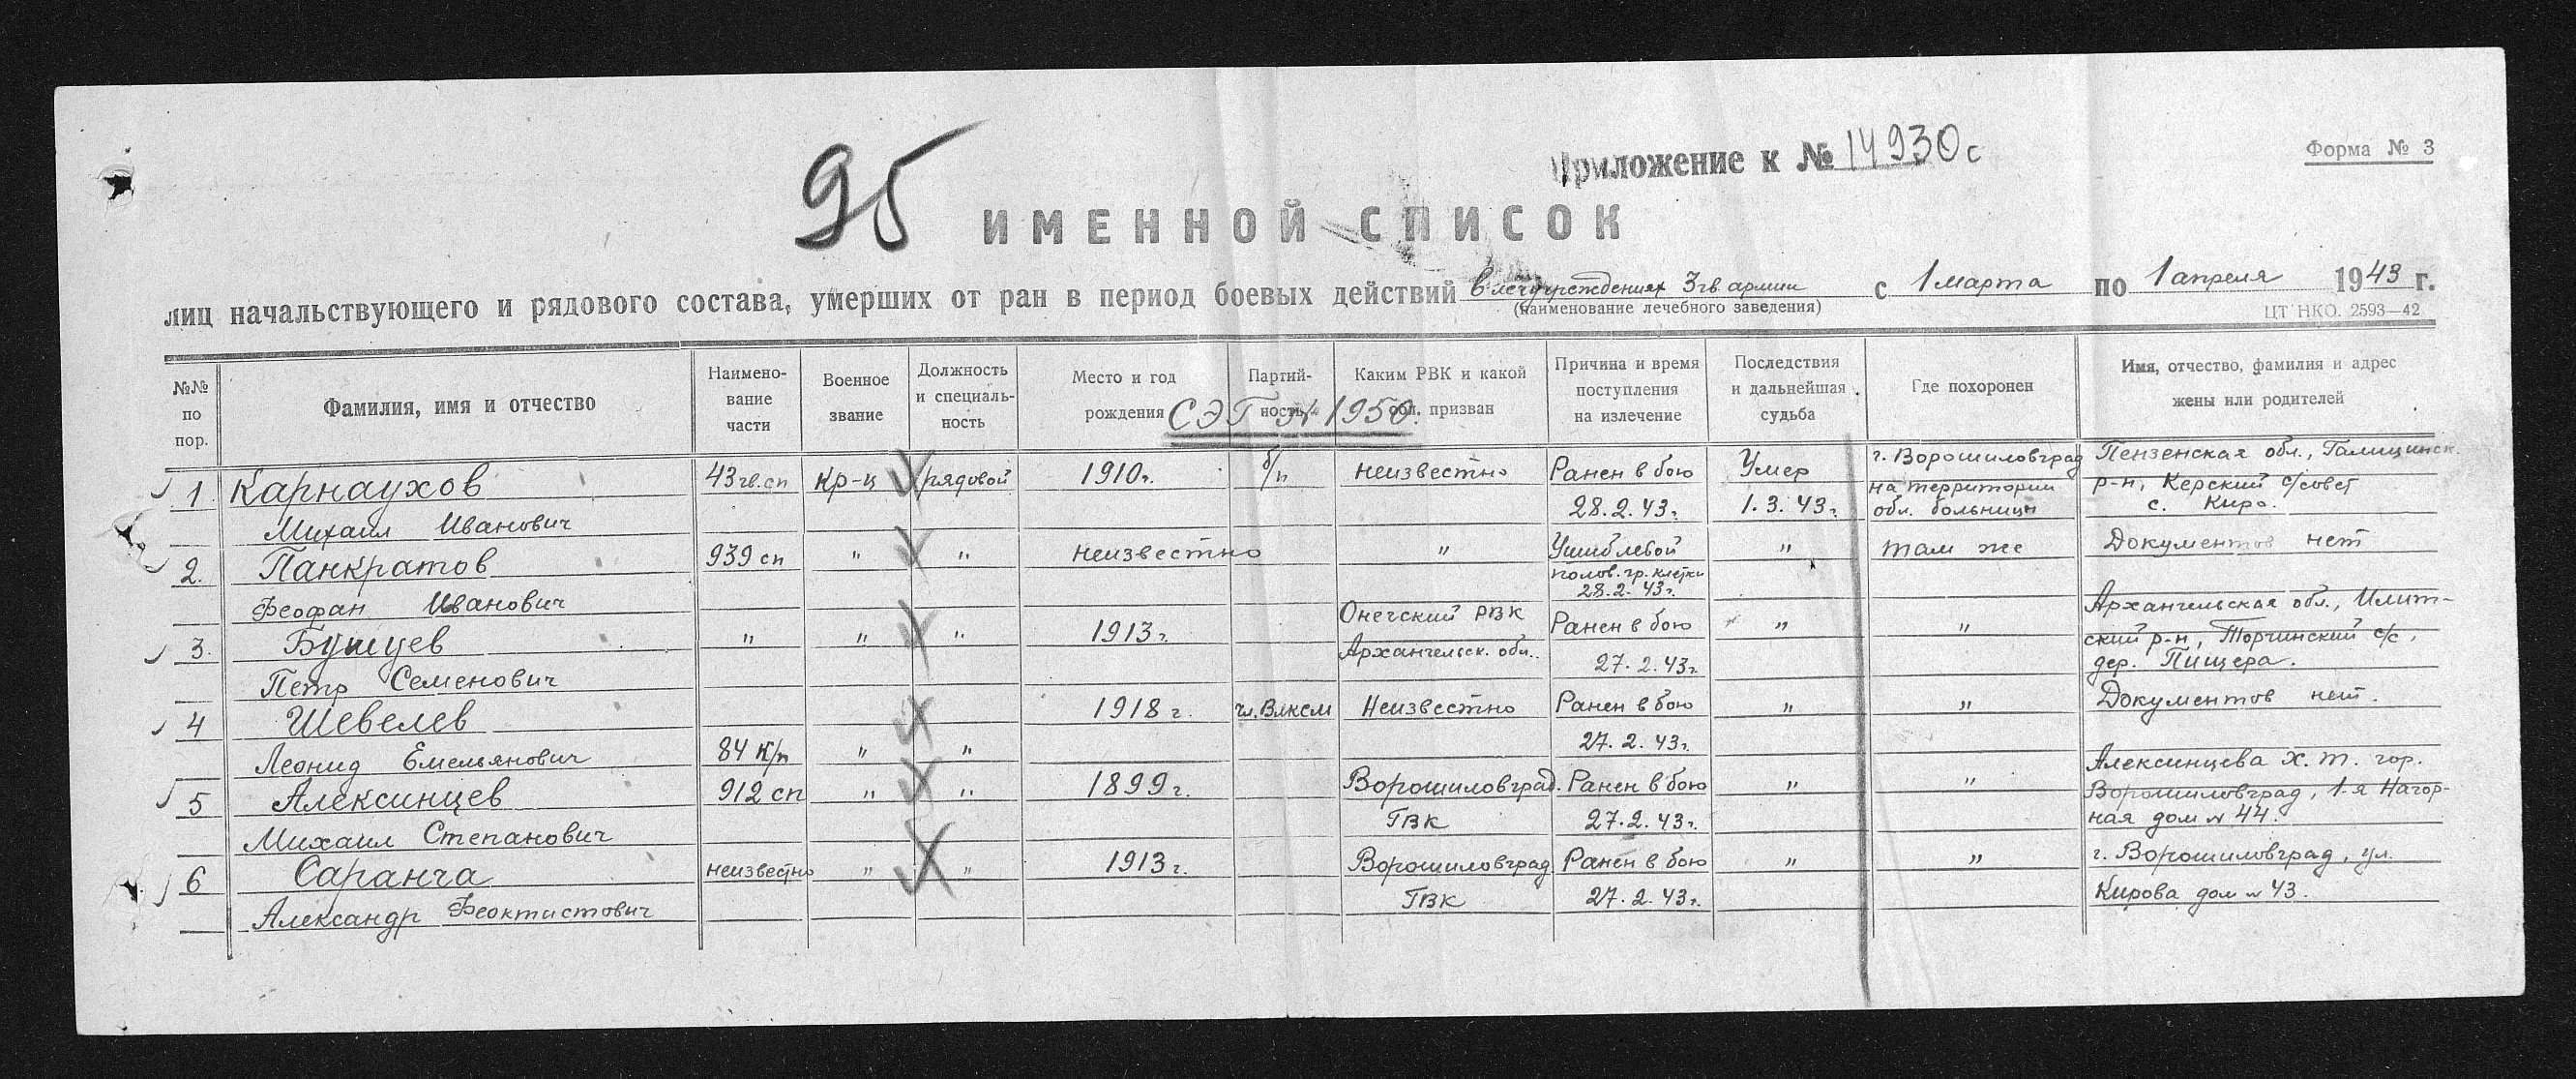 95
Приложение к № 14930с
Форма № 3
ИМЕННОЙ СПИСОК
лиц начальствующего и рядового состава, умерших от ран в период боевых действий в лечучреждениях 3 гв армии с 1 марта по 1 апреля 1943 г.
(наименование лечебного заведения)
ЦТ НКО. 2593—42
№№ по пор.
Фамилия, имя и отчество
Наимено-
вание
части
Военное
звание
Должность
и специаль-
ность
Место и год
рождения
Партий-
ность
Каким РВК и какой
обл. призван
Причина и время
поступления
на излечение
Последствия
и дальнейшая
судьба
Где похоронен
Имя, отчество, фамилия и адрес
жены или родителей
СЭГ № 1950.
1. Карнаухов 43 гв. сп кр-ц рядовой 1910г. б/п неизвестно Ранен в бою Умер г. Ворошиловград Пензенская обл.,
Михаил Иванович 28.2.43г. 1.3.43г. на территории обл. больницы р-н, Керский с/совет с.
2. Панкратов 939 сп " " неизвестно " Ушиб левой " там же Документов нет
Феофан Иванович полов. гр. клетки 28.2.43г.
3. Бушуев " " " 1913г. Онегский РВК Ранен в бою " " Архангельская обл.,
Петр Семенович Архангельск. обл. 27.2.43г. ский р-н, Торчинский с/с, дер. Пищера.
4 Шевелев 1918г. чл. ВЛКСМ Неизвестно Ранен в бою " " Документов нет.
Леонид Емельянович 84 к/п " " 27.2.43г.
5 Алексинцев 912 сп " " 1899г. Ворошиловград. Ранен в бою " " Алексинцева Х. Т. гор.
Михаил Степанович ГВК 27.2.43г. Ворошиловград, 1-я Нагор-
ная дом № 44.
6 Саранча неизвестно " " 1913г. Ворошиловград. Ранен в бою " " г. Ворошиловград, ул.
Александр Феоктистович ГВК 27.2.43г. Кирова дом № 43.